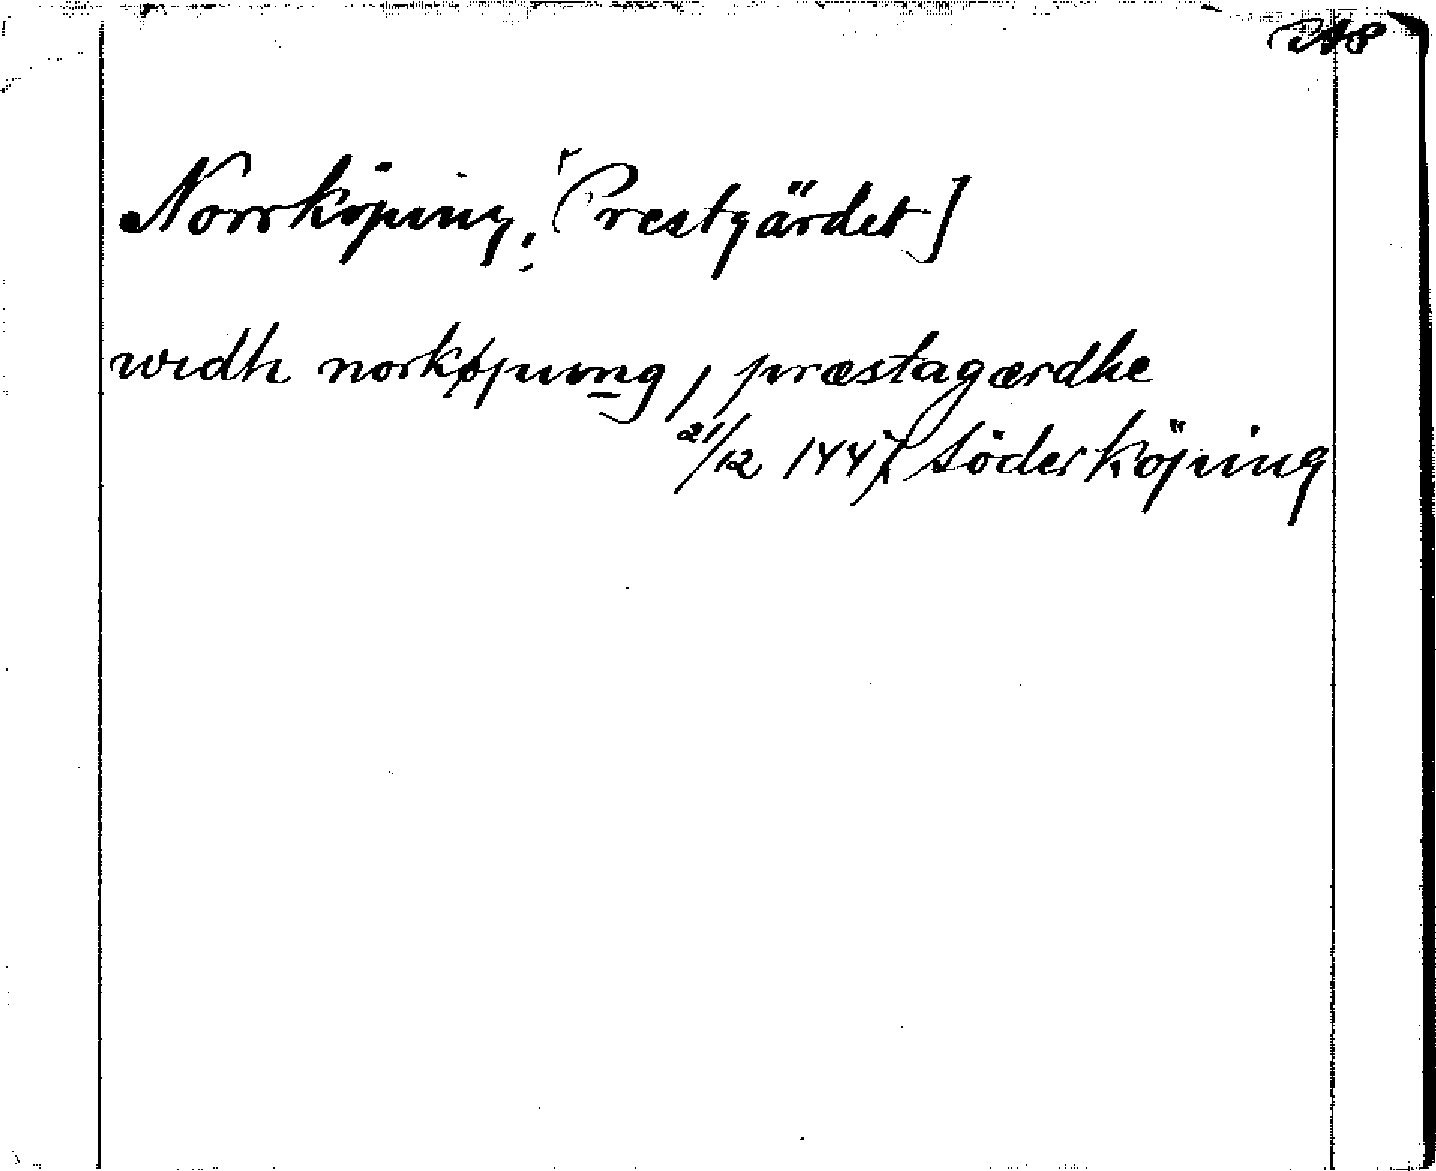 Norrköping; [Prestgärdet]
widh norkøpung, præstagærdhe
21/12 1447 Söderköping